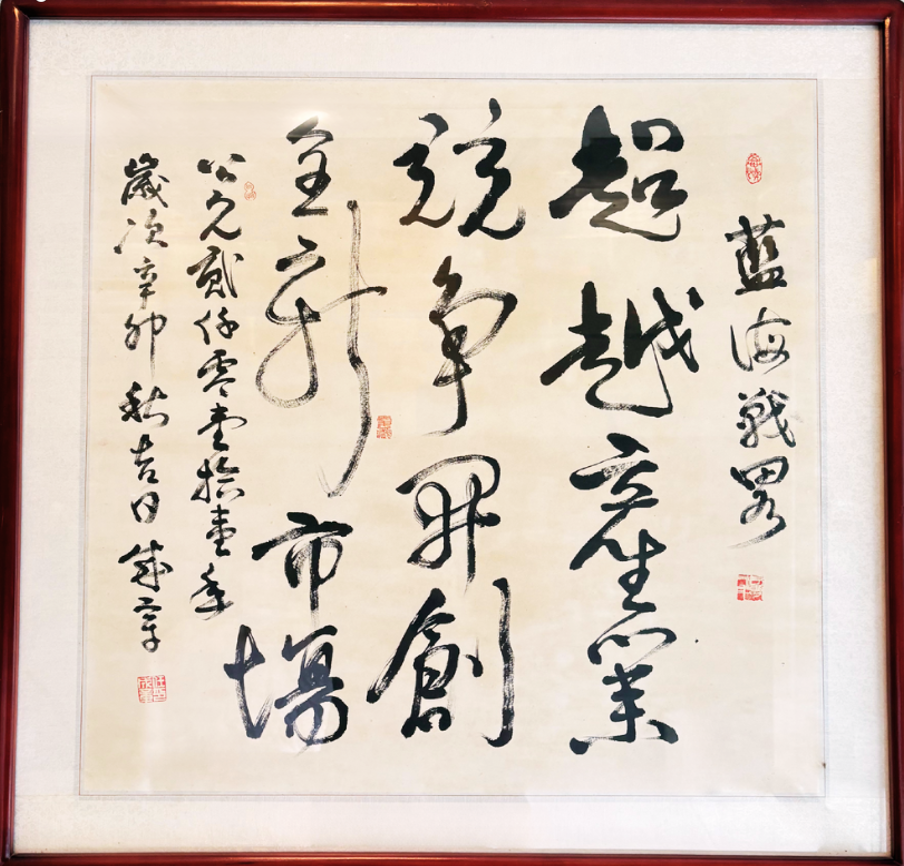 藍海戰略
超越產業
競爭開創
全新市場
公元貳仟零壹拾壹年
歲次辛卯秋吉日成章